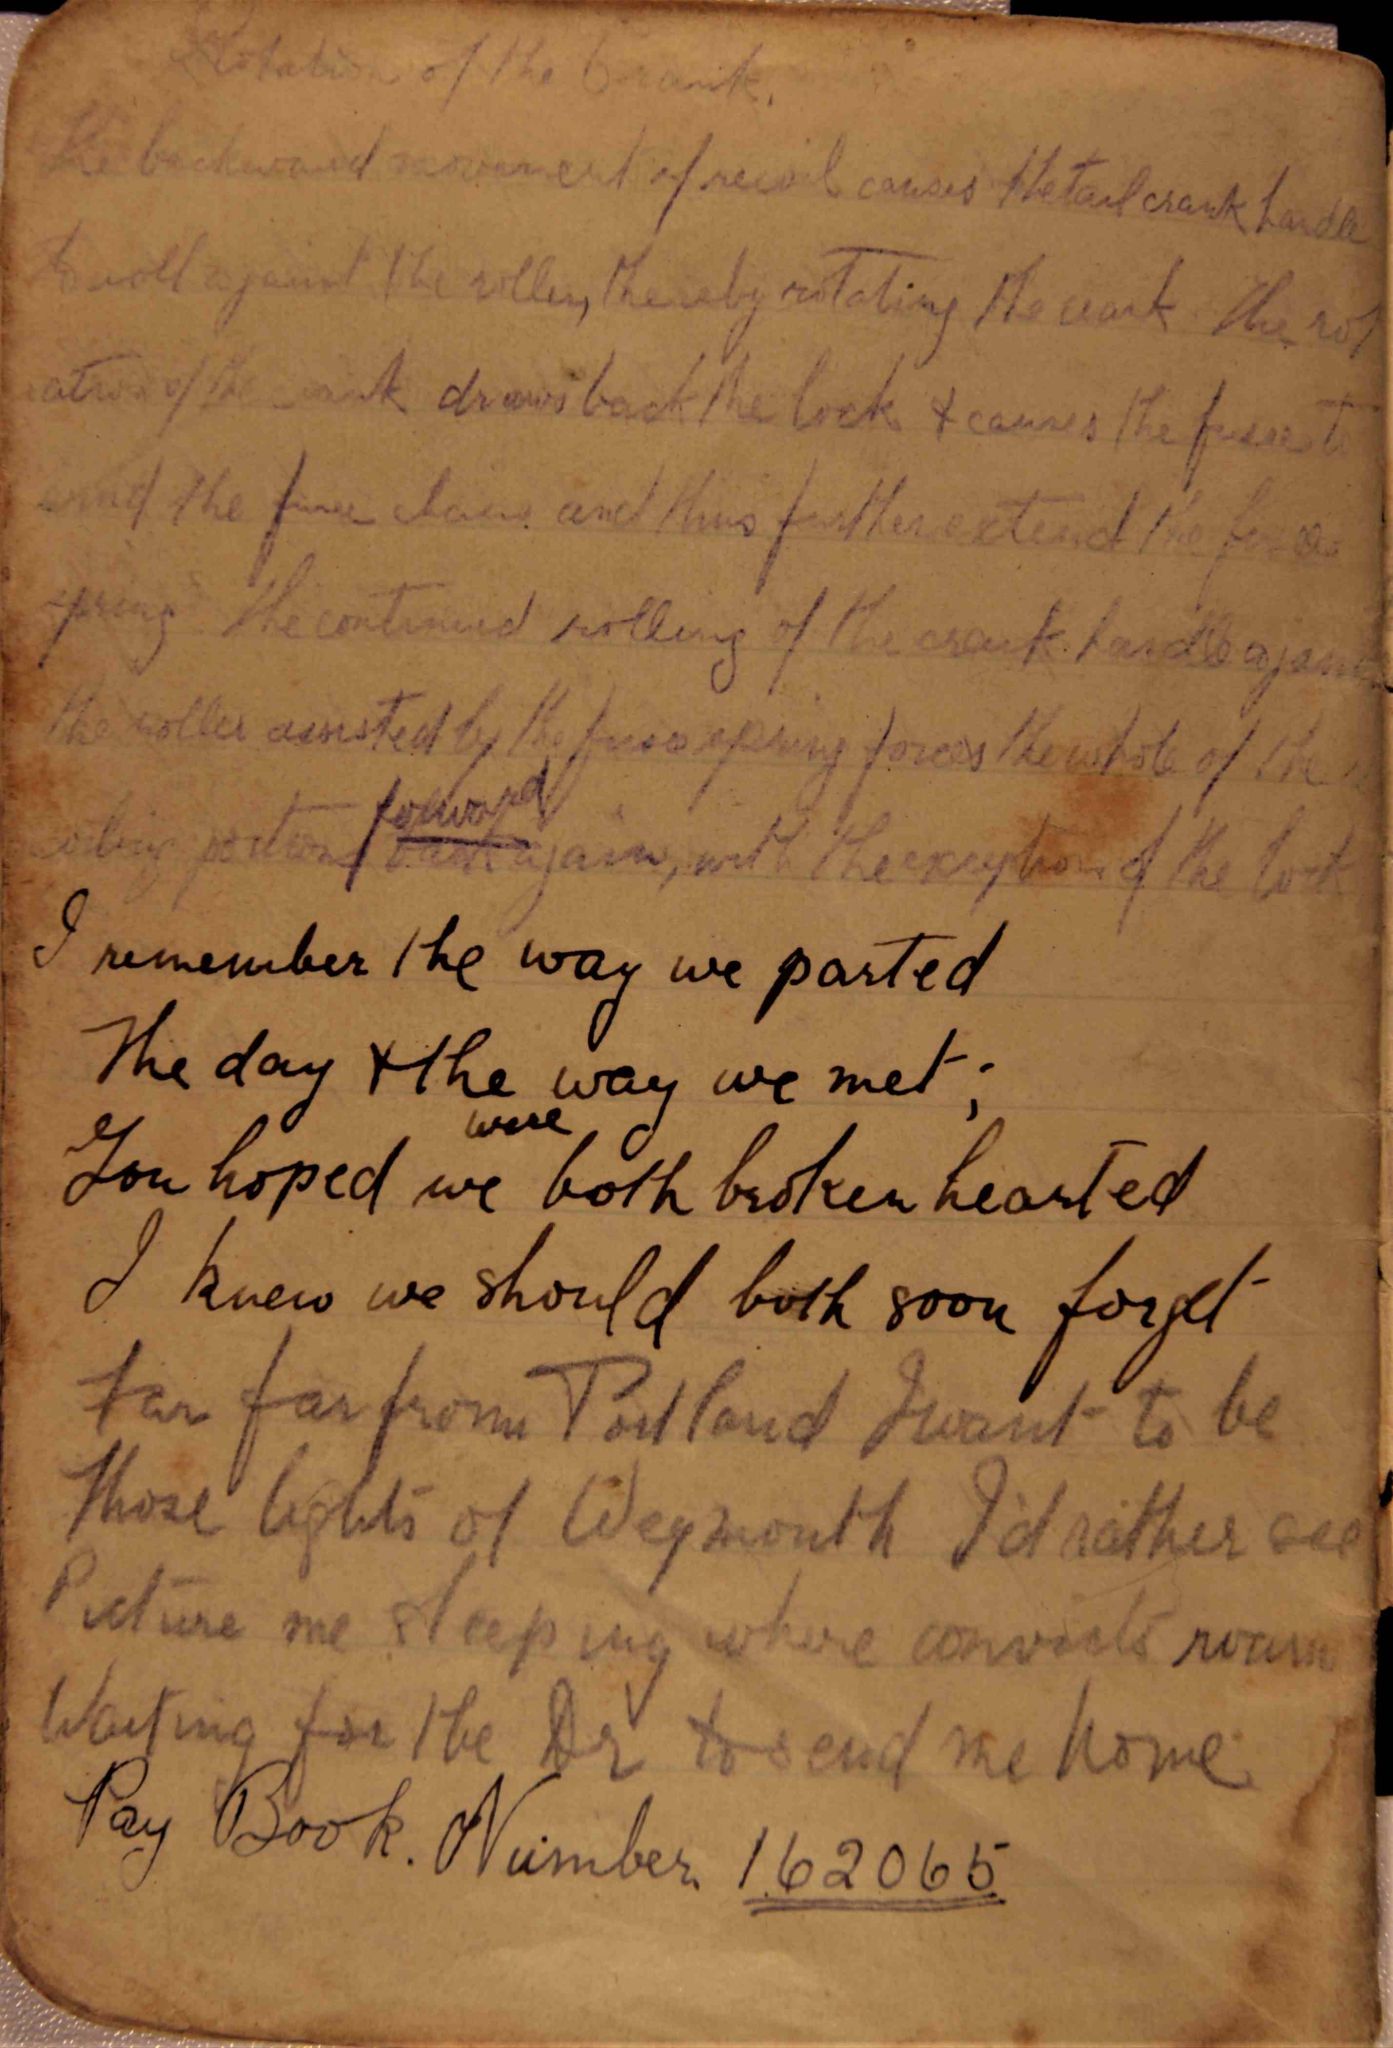 Rotation of the Crank.
The backward movement of recoil causes the tail crank handle
to roll against the roller, thereby rotating the crank. The rot
ation of the crank draws back the lock & causes the fusee to
wind the fusee chain and thus further extend the fusee
spring. The continued rolling of the crank handle against
the roller assisted by the fusee spring forces the whole of the
forward
coiling portions back again, with the exception of the lock
I remember the way we parted
The day & the way we met;
were
You hoped we both broken hearted
I knew we should both soon forget
Far far from Portland I want to be
Those lights of Weymouth I'd rather see
Picture me sleeping where convicts roam
Waiting for the Dr to send me home
Pay Book. Number 162065